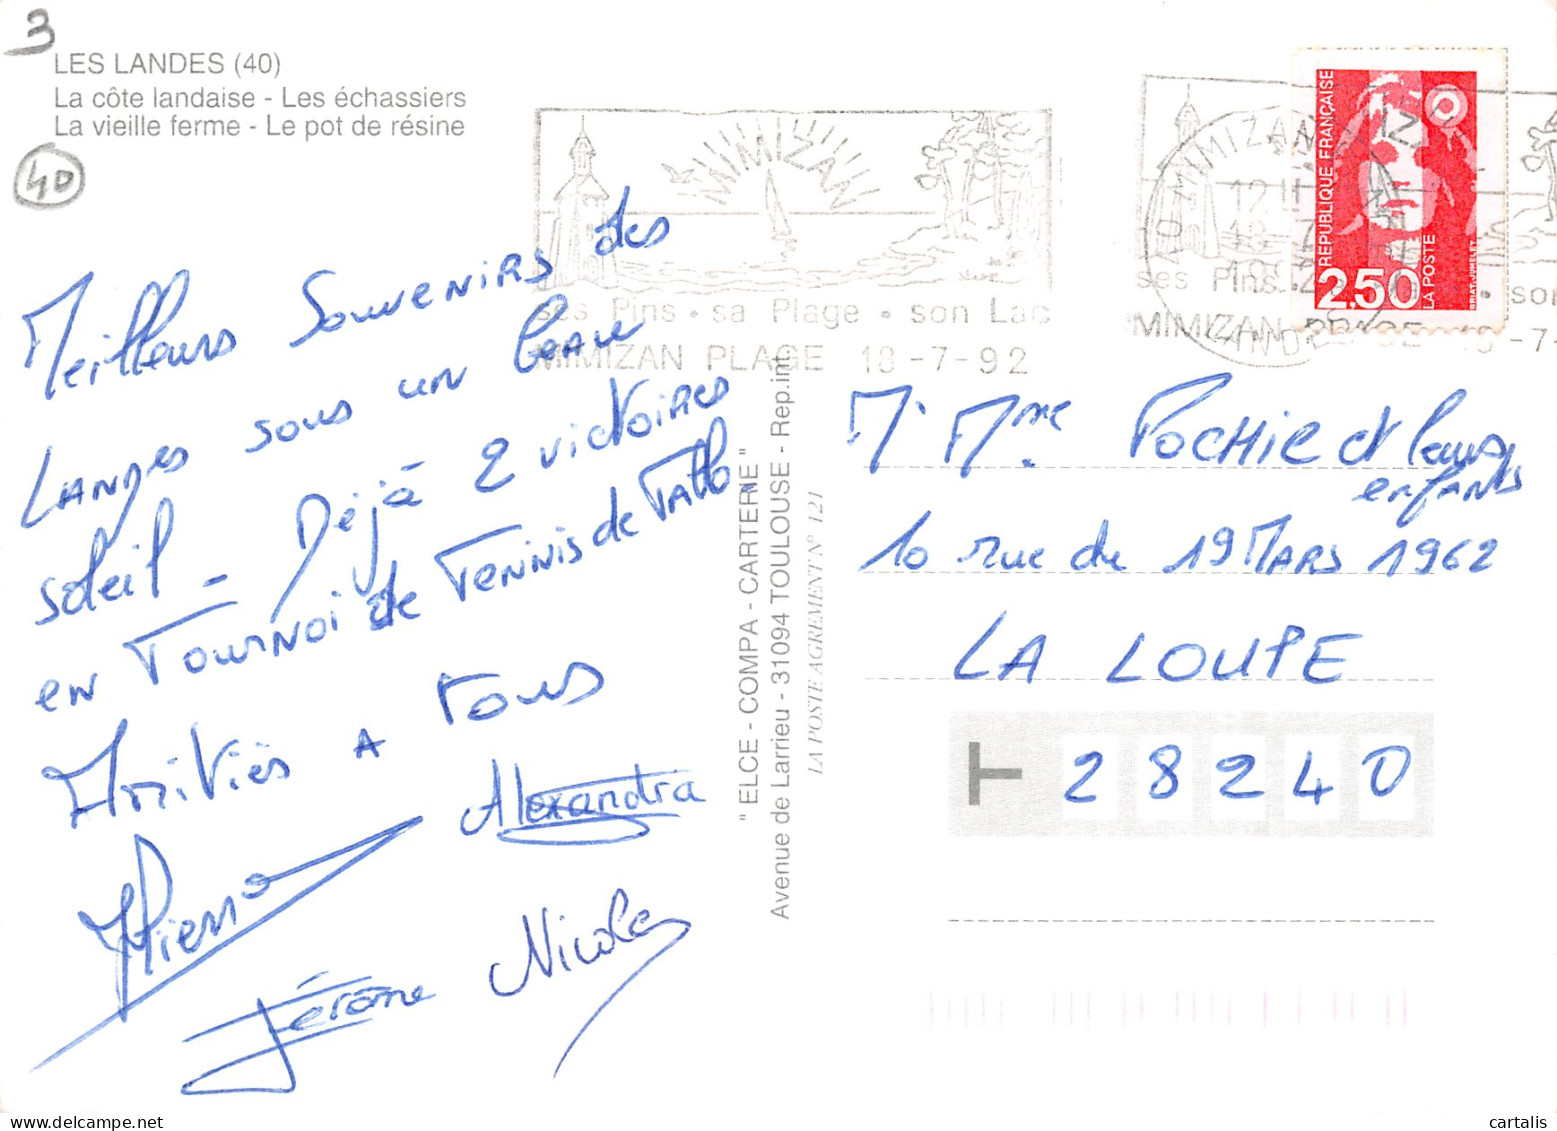 3
LES LANDES (40)
La côte landaise - Les échassiers
La vieille ferme - Le pot de résine
40
MIMIZAN
ses Pins • sa Plage • son Lac
MIMIZAN PLAGE 18-7-92
40 MIMIZAN
LANDES
ses Pins
MIMIZAN
son
REPUBLIQUE FRANÇAISE
2,50
LA POSTE
BRIAT-JUMELET
Meilleurs Souvenirs des
Landes sous un beau
soleil - Déjà 2 victoires
en Tournoi de Tennis de
Amitiés A tous
Alexandra
Pierre
Jérôme
Nicolas
" ELCE - COMPA - CARTERIE "
Avenue de Larrieu - 31094 TOULOUSE - Rep.int.
LA POSTE AGREMENT N° 121
M. Mme Pochic et leurs
enfants
10 rue du 19 Mars 1962
LA LOUPE
28240
cartalis
www.delcampe.net